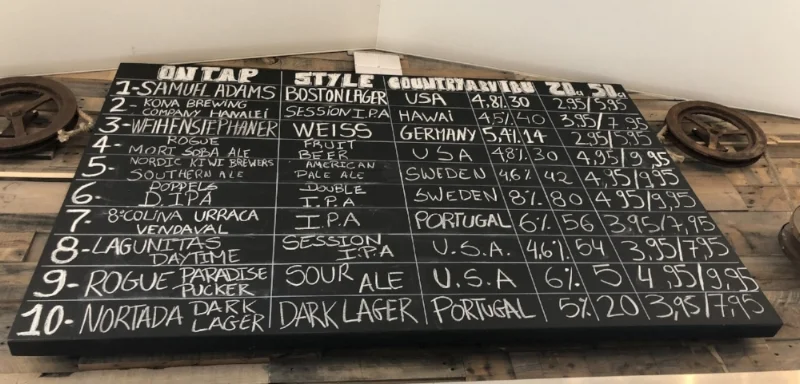 ON TAP STYLE COUNTRY ABV IBU 20cl 50cl
1-SAMUEL ADAMS BOSTON LAGER USA 4.8% 30 2.95/5.95
2- KONA BREWING COMPANY HANALEI SESSION I.P.A HAWAI 4,5% 40 3,95/7,95
3- WEIHENSTEPHANER WEISS GERMANY 5,4% 14 2,95/5,95
4- ROGUE MORI SOBA ALE FRUIT BEER USA 4,8% 30 4,95/9,95
5- NORDIC KIWI BREWERS SOUTHERN ALE AMERICAN PALE ALE SWEDEN 4,6% 42 4,95/9,95
6- POPPELS D.I.PA DOUBLE I.P.A SWEDEN 8% 80 4,95/9,95
7- 8ªCOLINA URRACA VENDAVAL I.P.A PORTUGAL 6% 56 3,95/7,95
8- LAGUNITAS DAYTIME SESSION I.P.A U.S.A. 4,6% 54 3,95/7,95
9- ROGUE PARADISE PUCKER SOUR ALE U.S.A 6% 5 4,95/9,95
10- NORTADA DARK LAGER DARK LAGER PORTUGAL 5% 20 3,95/7,95